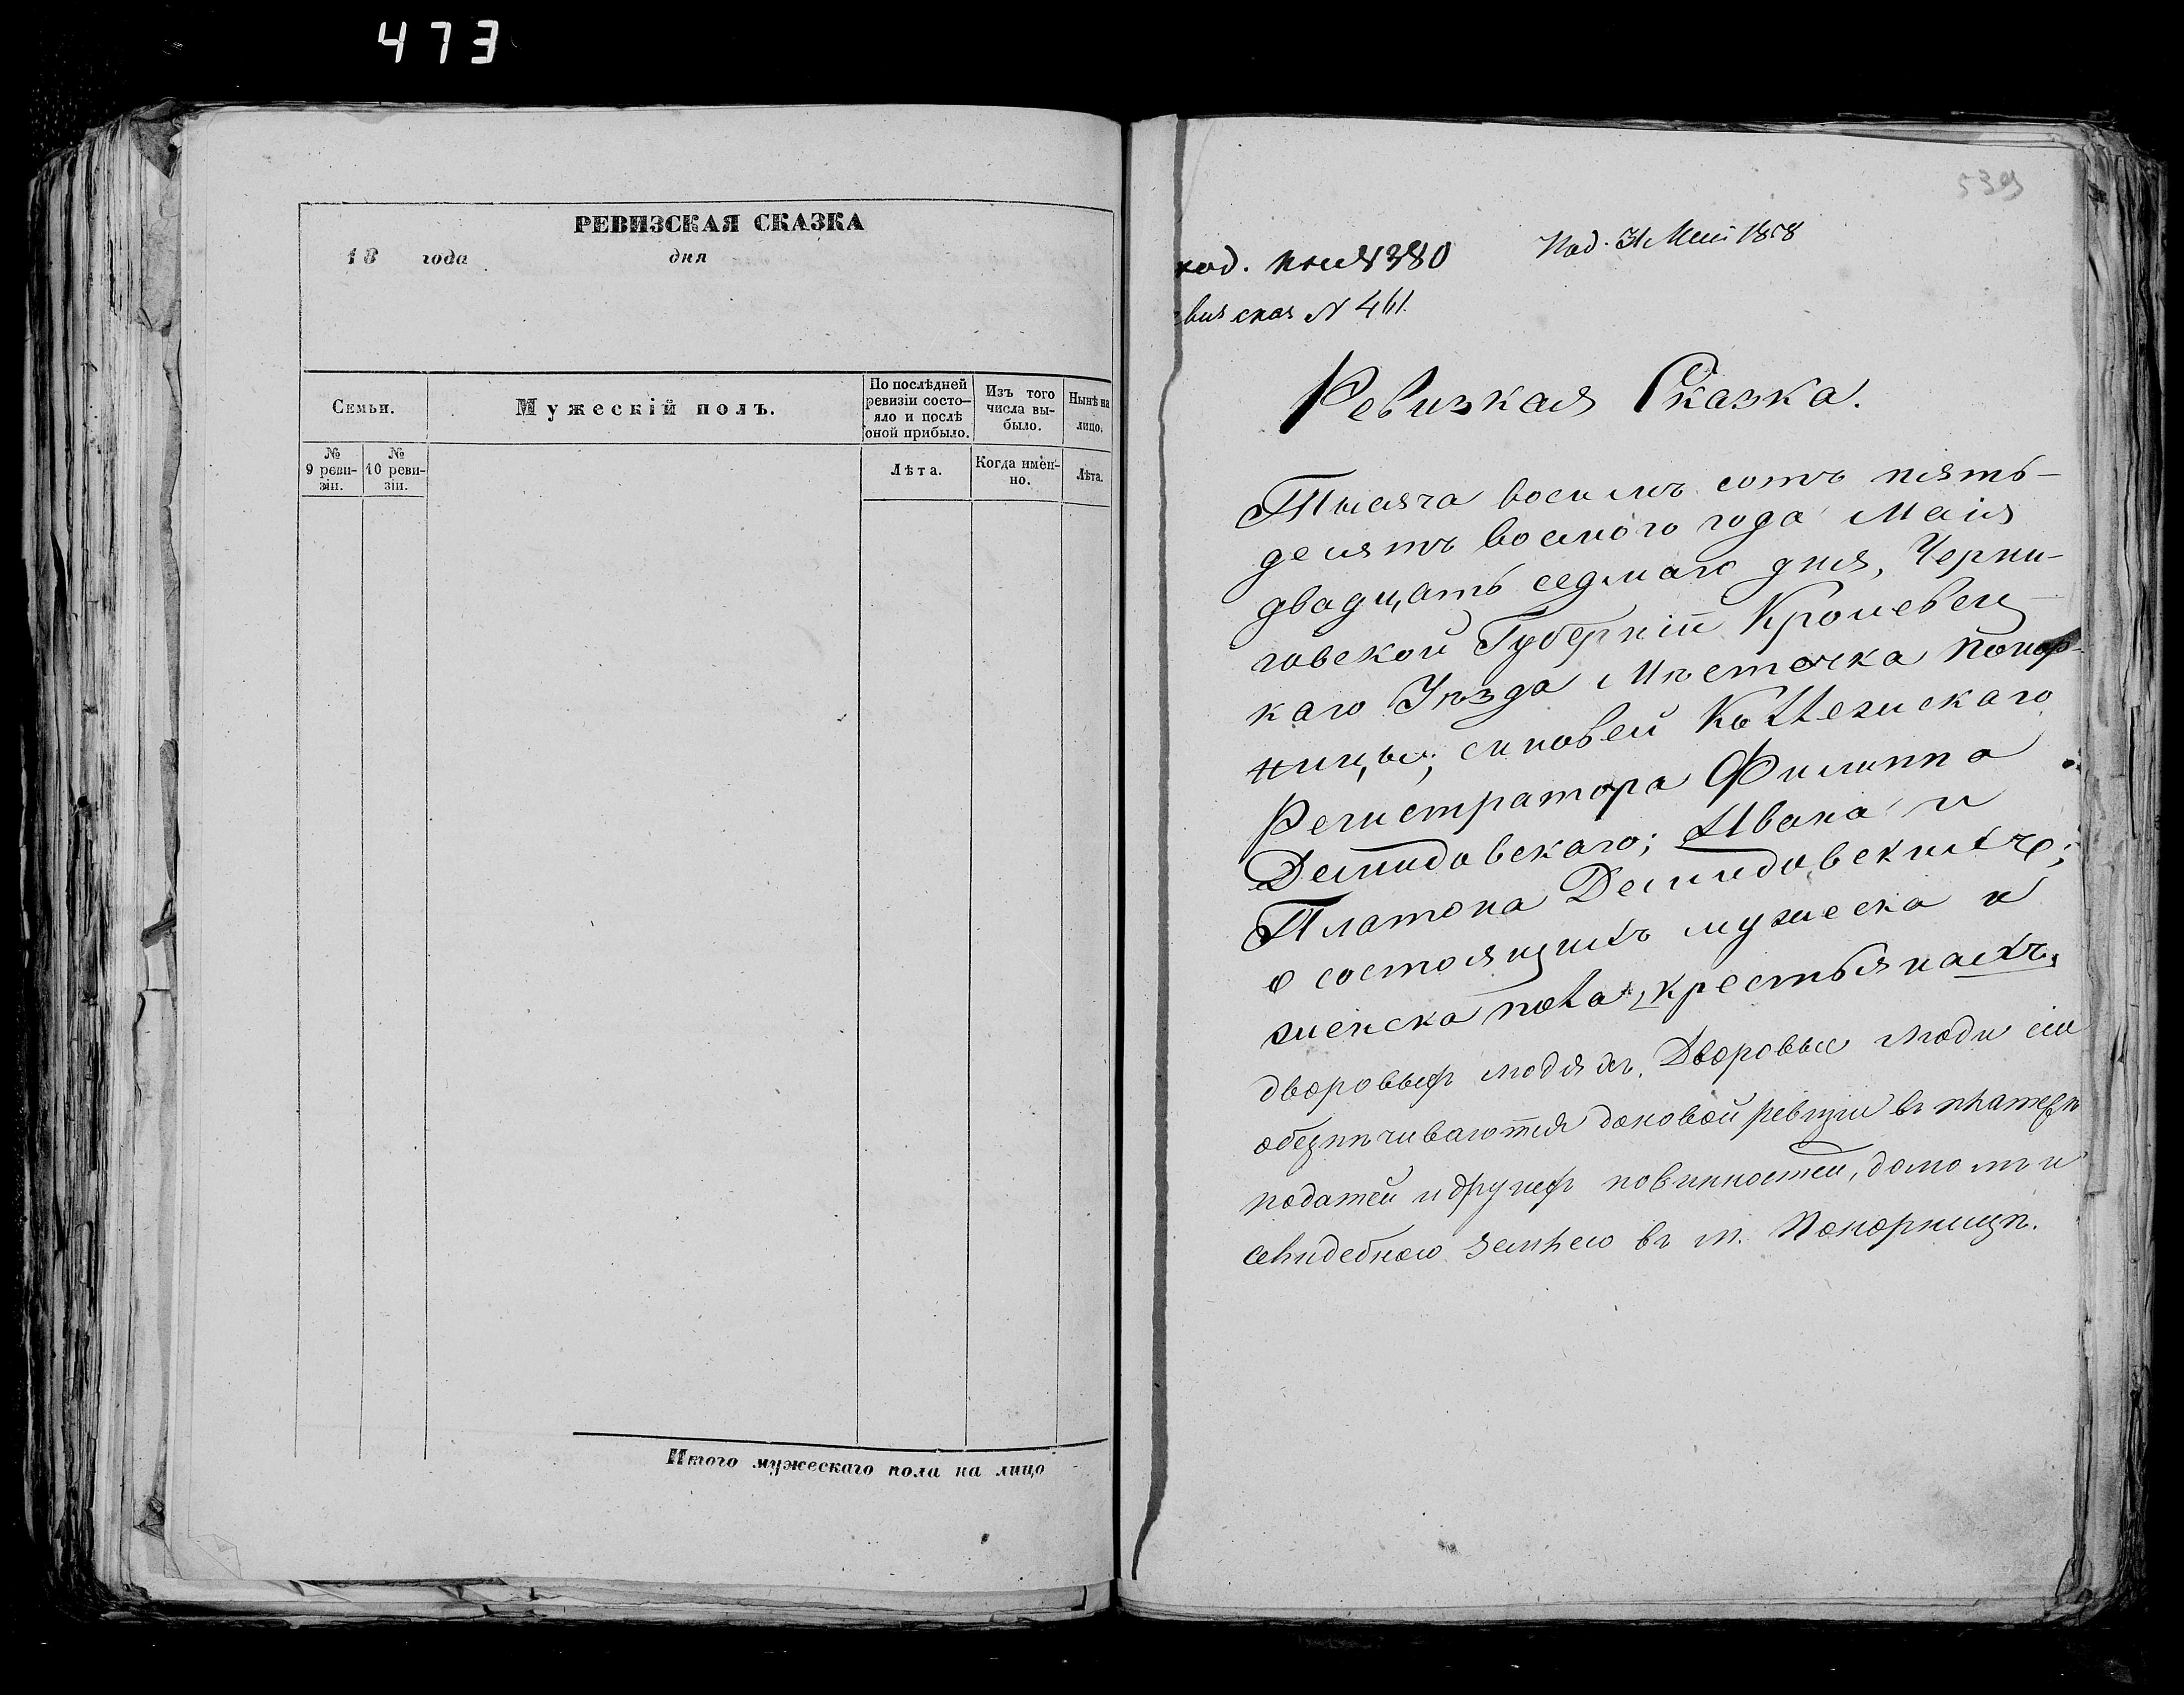 473
РЕВИЗСКАЯ СКАЗКА
18 года дня
Семьи.
Мужескій полъ.
По послѣдней ревизіи состо-яло и послѣ оной прибыло.
Изъ того числа вы-было.
Нынѣ на лицо.
№ 9 реви-зіи.
№ 10 реви-зіи.
Лѣта.
Когда имен-но.
Лѣта.
Итого мужескаго пола на лицо
539
Под. 31 Маія 1858
380
№ 461.
Ревизкая Сказка.
Тысяча восимъ сотъ пять-
десятъ восмого года Маія
двадцать седмаго дня, Черни-
говской Губерніи Кролевец-
каго Уѣзда Мѣстечка Понор-
ницы, синовей Колежскаго
Регистратора Филиппа
Демидовскаго; Ивана и
Платона Демидовскихъ;
о состоящихъ мужеска и
женска пола, крестьянахъ,
дворовыхъ людяхъ. Дворовые люди сіи
обезпѣчиваются до новой ревизіи въ платежѣ
податей и другихъ повинностей, домомъ и
селидебною землею въ м. Понорницѣ.